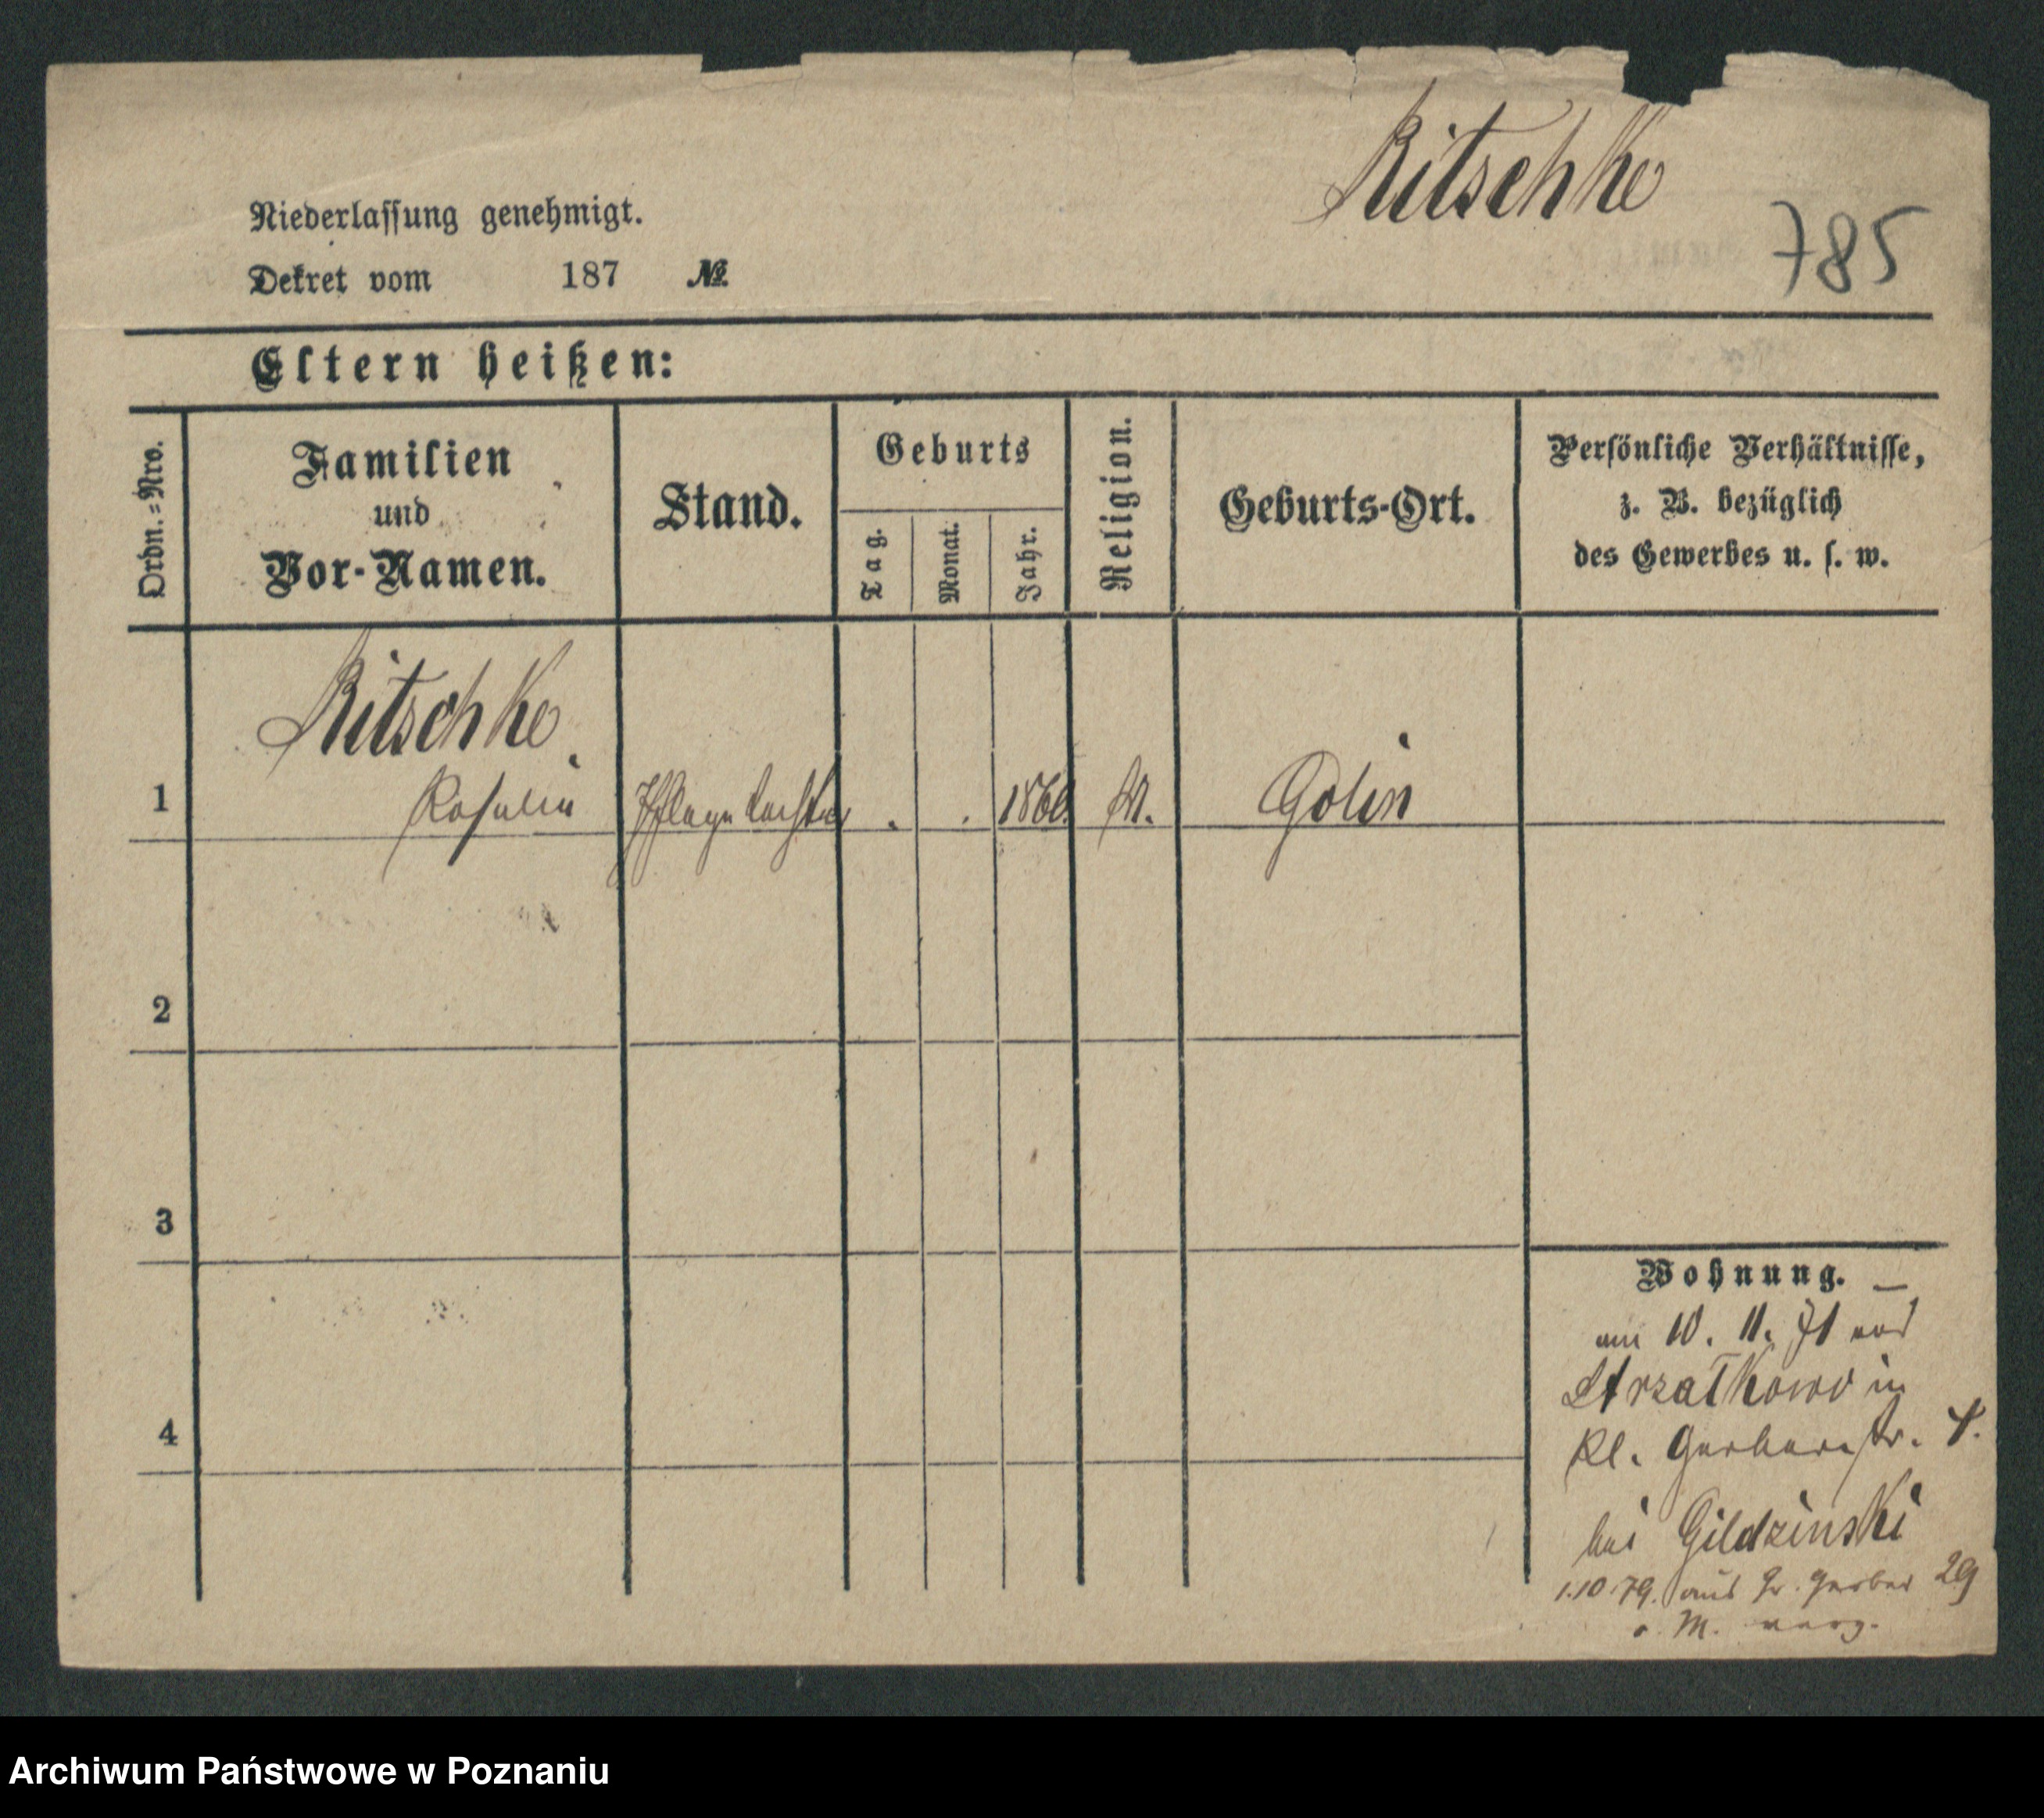 Ritschke
785
Niederlassung genehmigt.
Dekret vom 187 №
Eltern heißen:
Ordn.=Nro.
Familien
und
Vor-Namen.
Stand.
Geburts
Tag.
Monat.
Jahr.
Religion.
Geburts-Ort.
Persönliche Verhältnisse,
z. B. bezüglich
des Gewerbes u. s. w.
Ritschke
1 Rosalie Pflegetochter . . 1860. K. Golin
2
3
4
Wohnung. —
am 10. 11. 71 aus
Strzałkowo in
Kl. Gerberstr. 4.
bei Gildzinski
1.10.79. aus Gr. Gerber 29
n. M. verz.
Archiwum Państwowe w Poznaniu